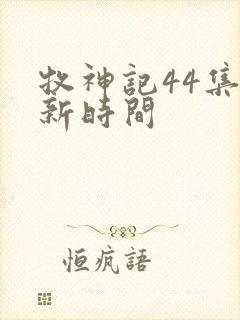 牧神記44集
新時間
恒瘋語